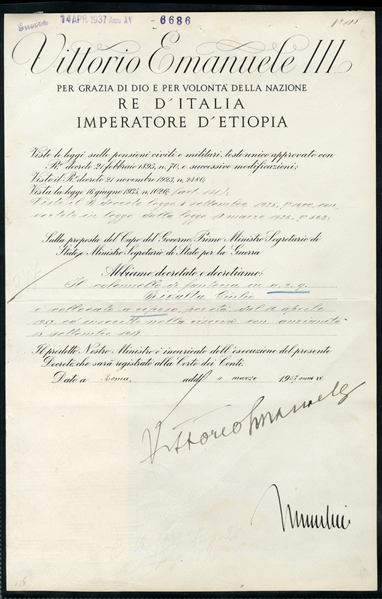 14 APR. 1937 Anno XV
6686
Vittorio Emanuele III
PER GRAZIA DI DIO E PER VOLONTÀ DELLA NAZIONE
RE D'ITALIA
IMPERATORE D'ETIOPIA
Viste le leggi sulle pensioni civili e militari, testo unico approvato con
R.º decreto 21 febbraio 1895, n. 70, e successive modificazioni;
Visto il R.º decreto 21 novembre 1923, n. 2480;
Vista la legge 16 giugno 1935, n. 1026;
Visto il R. decreto legge
in legge dalla legge marzo 1926,
Sulla proposta del Capo del Governo, Primo Ministro Segretario di
Stato, e Ministro Segretario di Stato per la Guerra
Abbiamo decretato e decretiamo:
Il colonnello di fanteria in
Giulio
è collocato a riposo dal aprile
1937 ed inscritto nella riserva con anzianità
settembre
Il predetto Nostro Ministro è incaricato dell'esecuzione del presente
Decreto, che sarà registrato alla Corte dei Conti.
Dato a Roma, addì marzo 1937 anno XV
Vittorio Emanuele
Mussolini